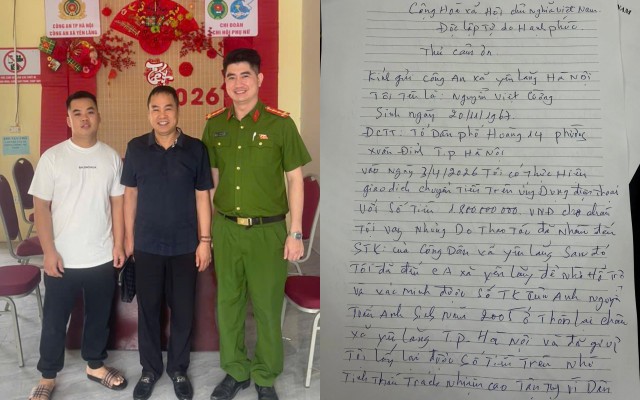 CÔNG AN TP HÀ NỘI
CÔNG AN XÃ YÊN LÃNG
CHI ĐOÀN
CHI HỘI PHỤ NỮ
Tết
2026
Cộng Hoà xã Hội chủ nghĩa Việt Nam
Độc lập Tự do Hạnh phúc
Thư cảm ơn
Kính gửi Công An xã yên lãng Hà Nội
Tôi Tên là: Nguyễn Viết Cường
Sinh ngày 20/11/1967
ĐCTT: Tổ Dân phố Hoàng 14 phường
xuân Đỉnh T.p Hà Nội
vào ngày 3/4/2026 Tôi có Thực Hiện
giao dịch chuyển Tiền Trên ứng Dụng điện Thoại
với Số Tiền 1.800.000.000 VNĐ cho
Tôi vay Nhưng Do Thao Tác đã Nhầm đến
STK: của Công Dân xã yên lãng Sau đó
Tôi đã đến CA xã yên lãng để Nhờ Hỗ Trợ
và xác minh được Số TK Tuấn Anh Nguyễn
Tuấn Anh Sinh Năm 2005 ở Thôn lai châu
xã yên lãng T.P Hà Nội và đã
Tôi lấy lại được Số Tiền Trên Nhờ
Tinh Thần Trách Nhiệm cao Tận Tụy vì Dân